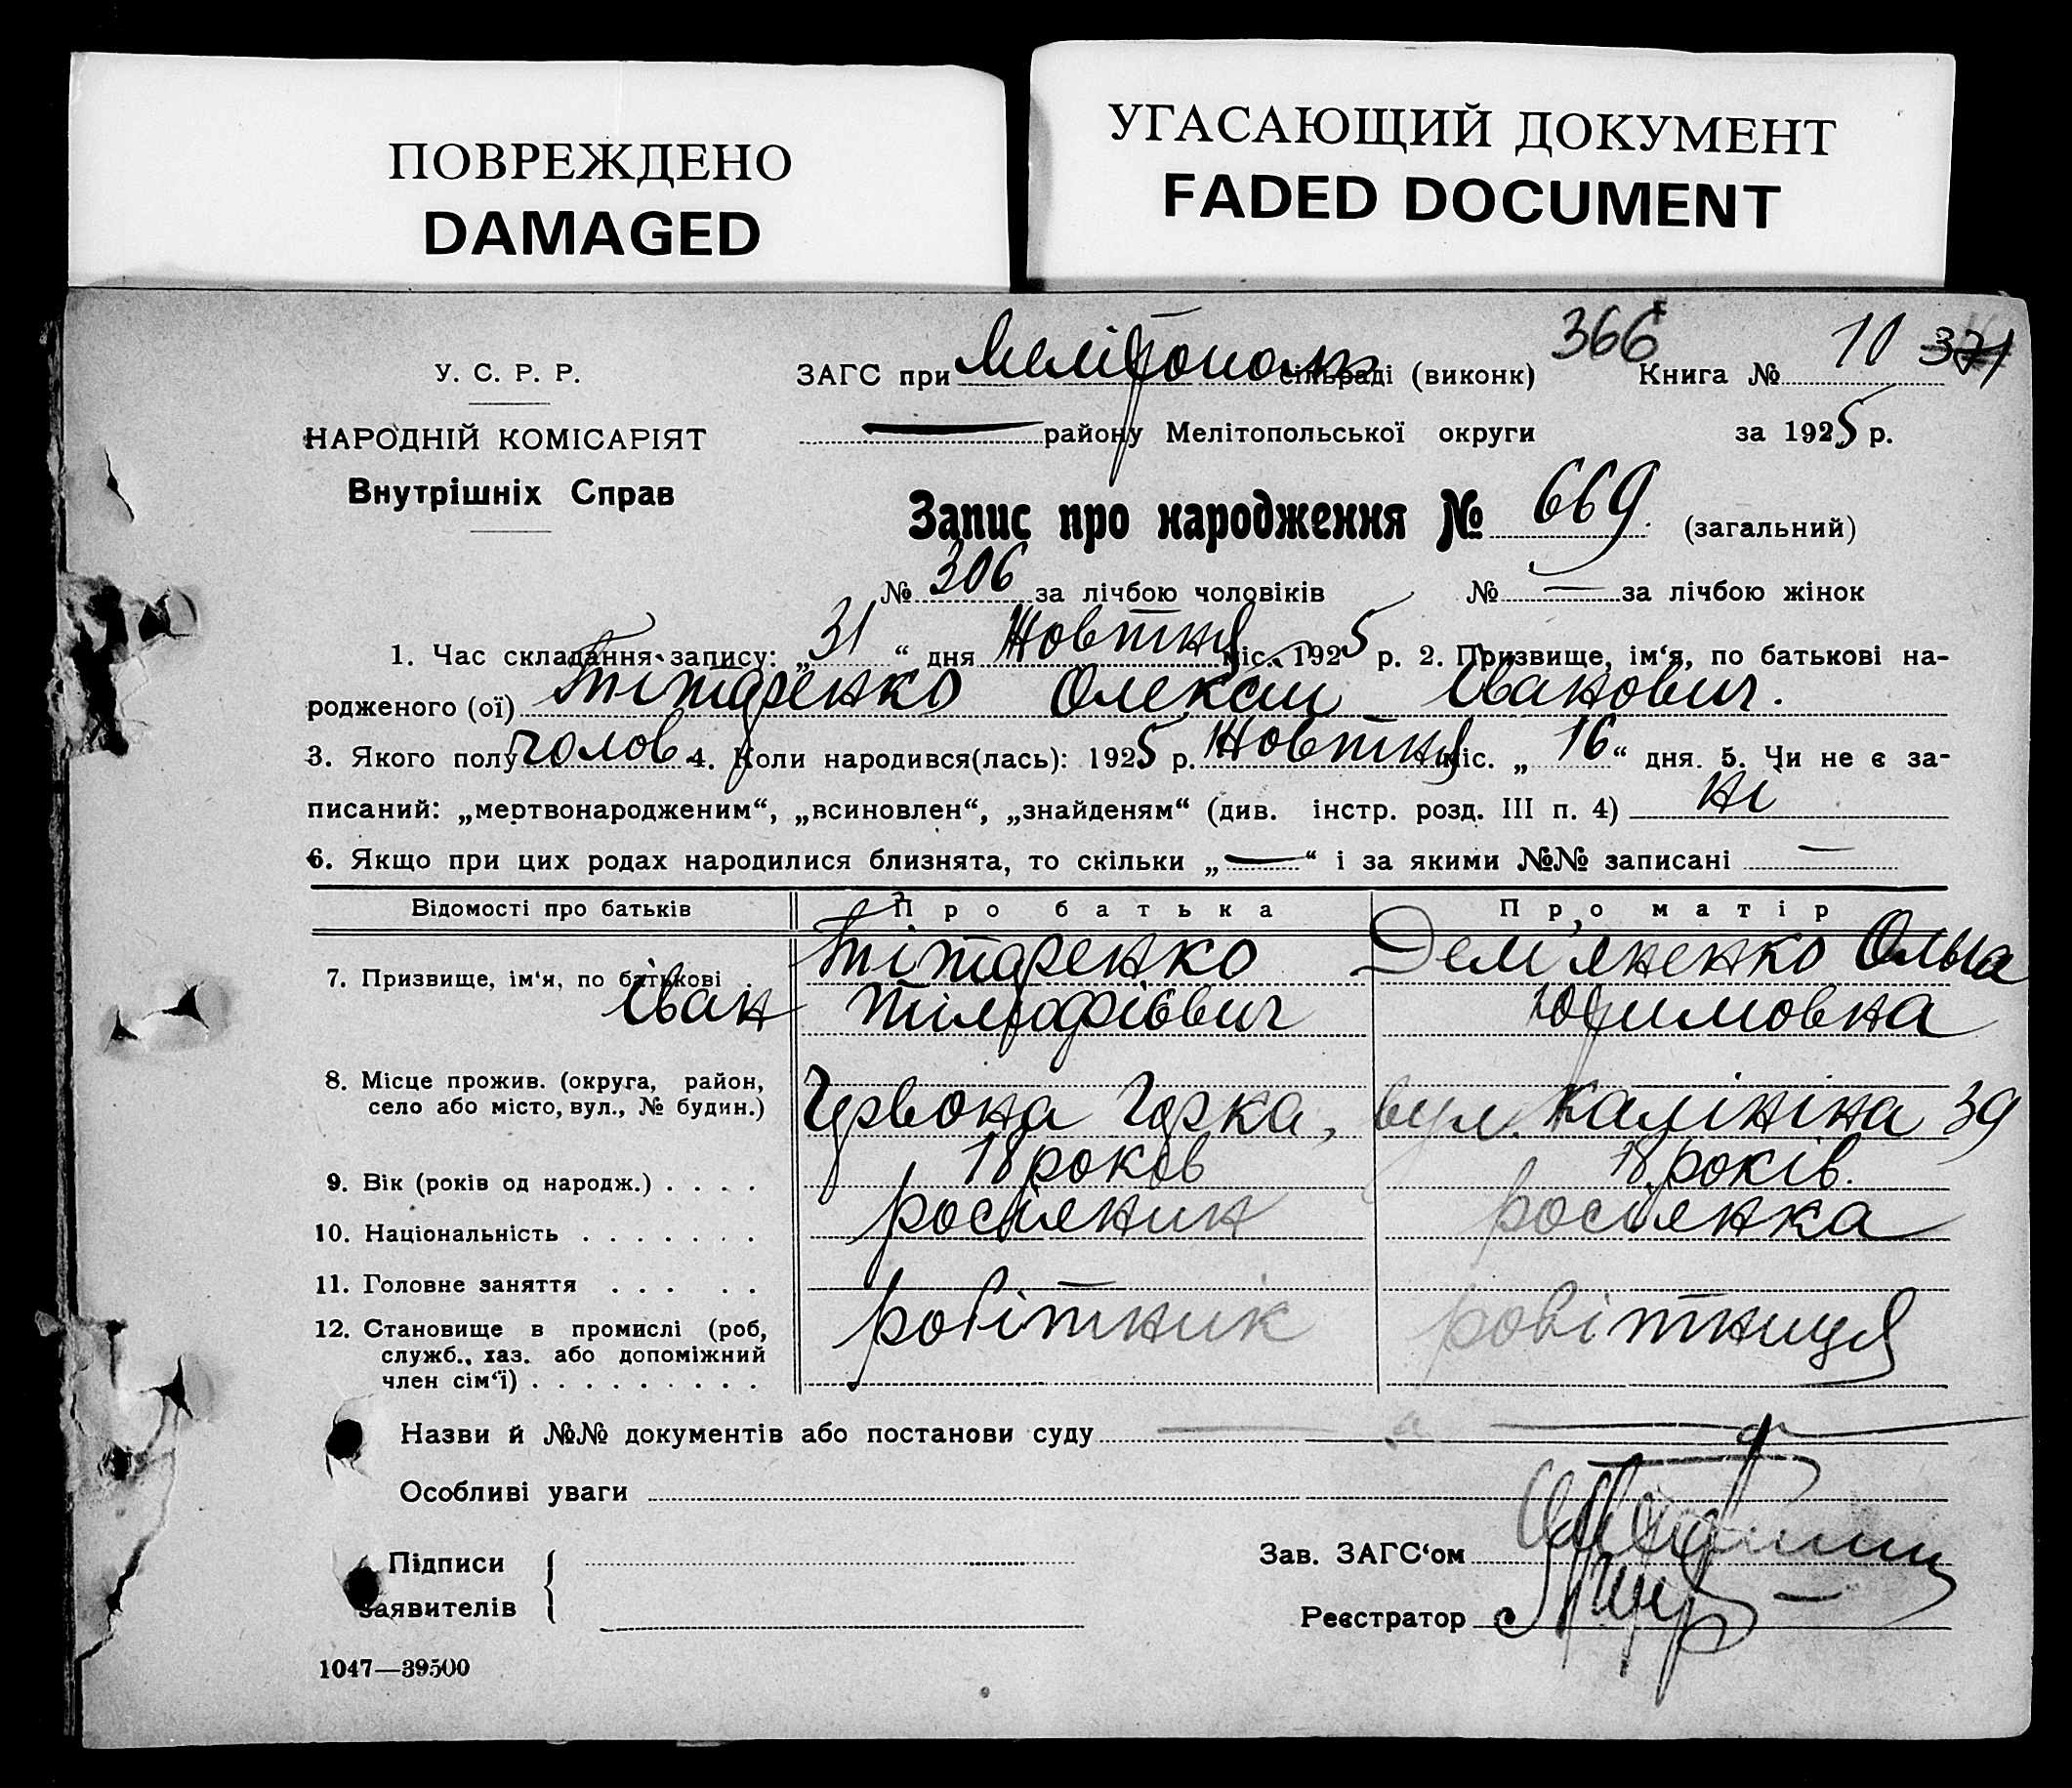 ПОВРЕЖДЕНО
DAMAGED
УГАСАЮЩИЙ ДОКУМЕНТ
FADED DOCUMENT
366 10 371
У. С. Р. Р. ЗАГС при сільраді (виконк) Книга №
НАРОДНІЙ КОМІСАРІЯТ району Мелітопольської округи за 1925 р.
Внутрішніх Справ
Запис про народження № 669. (загальний)
№ 306 за лічбою чоловіків № — за лічбою жінок
1. Час складання запису: „31“ дня Жовтня міс. 1925 р. 2. Призвище, ім‘я, по батькові на-
родженого (ої) Тітаренко Олексій Іванович.
3. Якого полу чолов. 4. Коли народився(лась): 1925 р. Жовтня міс. „16“ дня. 5. Чи не є за-
писаний: „мертвонародженим“, „всиновлен“, „знайденям“ (див. інстр. розд. III п. 4) ні
6. Якщо при цих родах народилися близнята, то скільки „—“ і за якими №№ записані —
Відомості про батьків Про батька Про матір
7. Призвище, ім‘я, по батькові Тітаренко Дем'яненко Ольга
Іван
8. Місце прожив. (округа, район,
село або місто, вул., № будин.) Червона Горка, вул. Калініна 39
9. Вік (років од народж.) . . . . 18 років 18 років.
10. Національність . . . . . . . росіянин росіянка
11. Головне заняття . . . . . —
12. Становище в промислі (роб, робітник робітниця
служб., хаз. або допоміжний
член сім‘ї) . . . . . . . . .
Назви й №№ документів або постанови суду
Особливі уваги
Підписи
заявителів
Зав. ЗАГС‘ом
Реєстратор
1047—39500